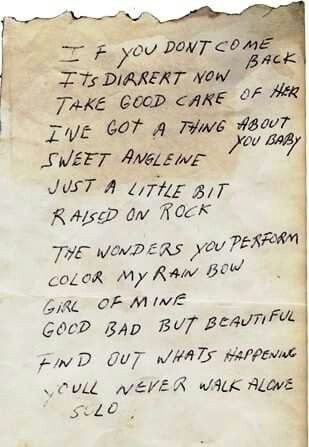 IF YOU DONT COME
BACK
ITS DIRRERT NOW
TAKE GOOD CARE OF HER
I'VE GOT A THING ABOUT
YOU BABY
SWEET ANGLEINE
JUST A LITTLE BIT
RAISED ON ROCK
THE WONDERS YOU PERFORM
COLOR MY RAIN BOW
GIRL OF MINE
GOOD BAD BUT BEAUTIFUL
FIND OUT WHATS HAPPENING
YOULL NEVER WALK ALONE
SOLO